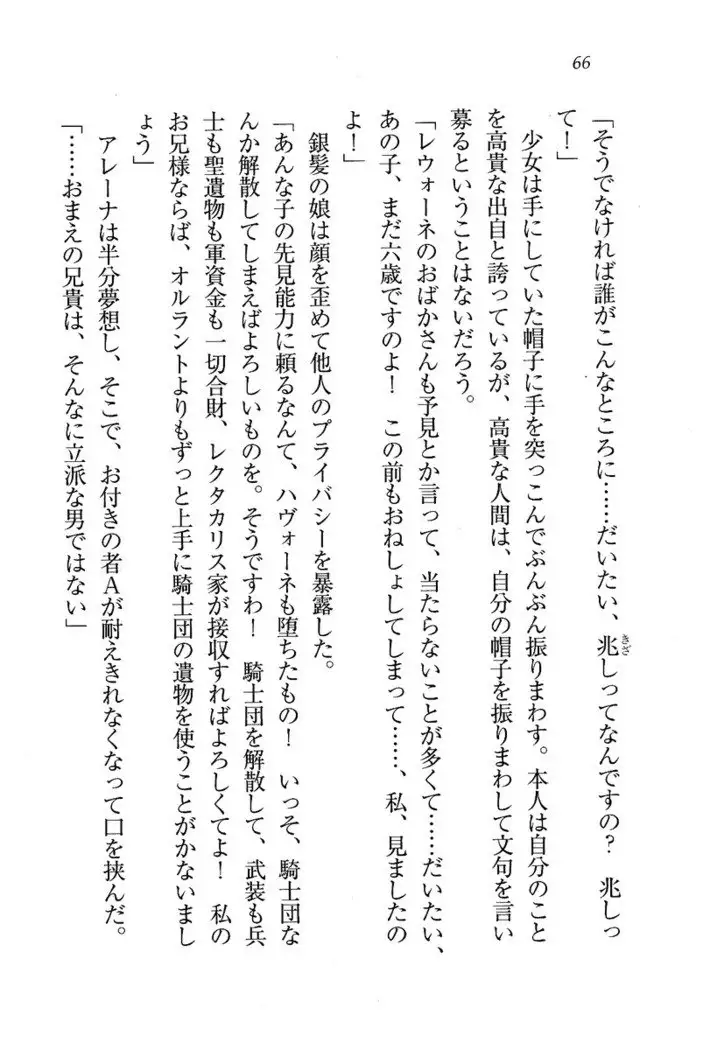 66
「そうでなければ誰がこんなところに……だいたい、兆しってなんですの？　兆しっ
きざ
て！」
少女は手にしていた帽子に手を突っこんでぶんぶん振りまわす。本人は自分のこと
を高貴な出自と誇っているが、高貴な人間は、自分の帽子を振りまわして文句を言い
募るということはないだろう。
「レウォーネのおばかさんも予見とか言って、当たらないことが多くて……だいたい、
あの子、まだ六歳ですのよ！　この前もおねしょしてしまって……、私、見ましたの
よ！」
銀髪の娘は顔を歪めて他人のプライバシーを暴露した。
「あんな子の先見能力に頼るなんて、ハヴォーネも堕ちたもの！　いっそ、騎士団な
んか解散してしまえばよろしいものを。そうですわ！　騎士団を解散して、武装も兵
士も聖遺物も軍資金も一切合財、レクタカリス家が接収すればよろしくてよ！　私の
お兄様ならば、オルラントよりもずっと上手に騎士団の遺物を使うことがかないまし
ょう」
アレーナは半分夢想し、そこで、お付きの者Ａが耐えきれなくなって口を挟んだ。
「……おまえの兄貴は、そんなに立派な男ではない」